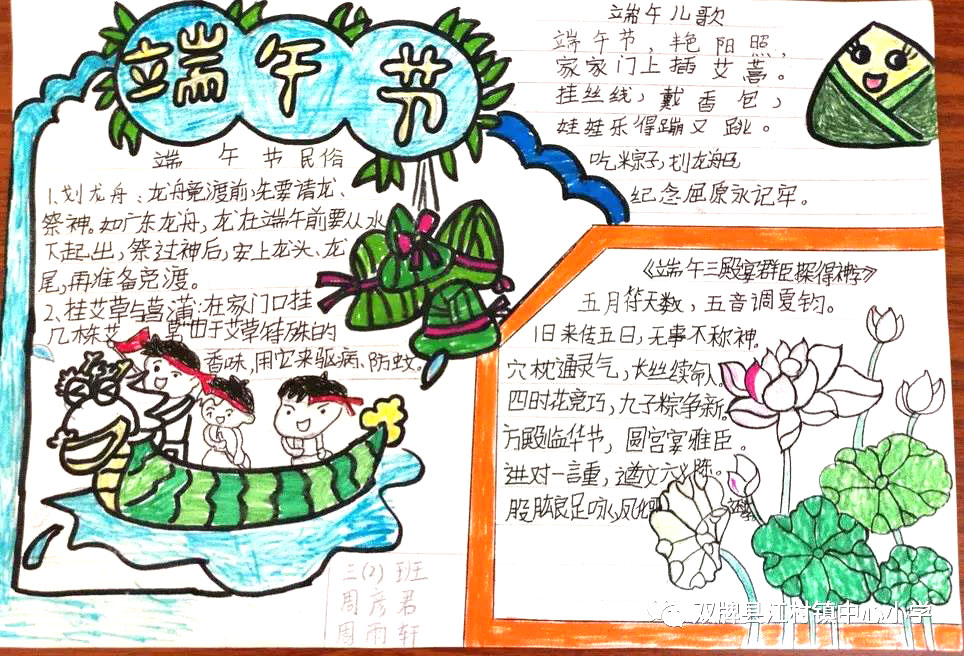 端午节
端午节民俗
1、划龙舟、龙舟竞渡前,先要请龙、
祭神。如广东龙舟,龙在端午前要从水
下起出,祭过神后,安上龙头、龙
尾,再准备竞渡。
2、挂艾草与菖蒲:在家门口挂
几株艾 草由于艾草特殊的
香味,用它来驱病、防蚊。
三(2)班
周彦君
周雨轩
端午儿歌
端午节,艳阳照,
家家门上插艾蒿。
挂丝线,戴香包,
娃娃乐得蹦又跳。
吃粽子,划龙舟
纪念屈原永记牢。
《端午三殿宴群臣探得神字》
五月符天数,五音调夏钧。
旧来传五日,无事不称神。
穴枕通灵气,长丝续命人。
四时花竞巧,九子粽争新。
方殿临华节,圆宫宴雅臣。
进对一言重,遒文六义陈。
股肱良足咏,凤
双牌县江村镇中心小学